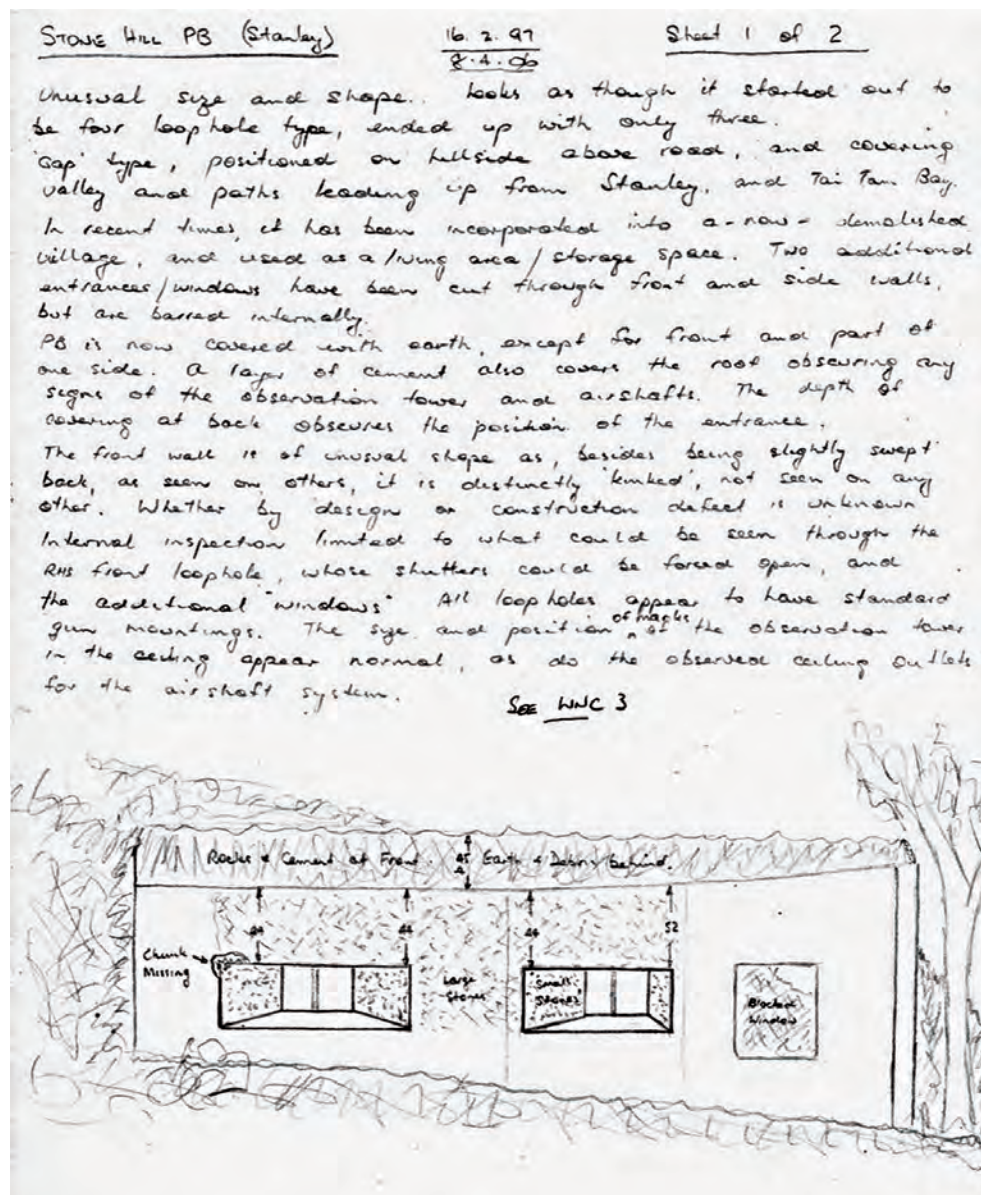 STONE HILL PB (Stanley)
16. 2. 97
8.4.06
Sheet 1 of 2
Unusual size and shape.. Looks as though it started out to
be four loophole type, ended up with only three.
'Gap' type, positioned on hillside above road, and covering
valley and paths leading up from Stanley, and Tai Tam Bay.
In recent times, it has been incorporated into a-now-demolished
village, and used as a living area / storage space. Two additional
entrances/windows have been cut through front and side walls,
but are barred internally.
PB is now covered with earth, except for front and part of
one side. A layer of cement also covers the roof obscuring any
signs of the observation tower and airshafts. The depth of
covering at back obscures the position of the entrance.
The front wall is of unusual shape as, besides being slightly swept
back, as seen on others, it is distinctly 'kinked', not seen on any
other. Whether by design or construction defect is unknown
Internal inspection limited to what could be seen through the
RHS front loophole, whose shutters could be forced open, and
the additional "windows" All loopholes appear to have standard
gun mountings. The size and position of marks of the observation tower
in the ceiling appear normal, as do the observed ceiling outlets
for the airshaft system.
SEE WNC 3
Rocks & Cement at Front. 45 Earth & Debris behind.
44 44 44 52
Chunk
Missing
Large
Stones
Small
Stones
Blocked
Window